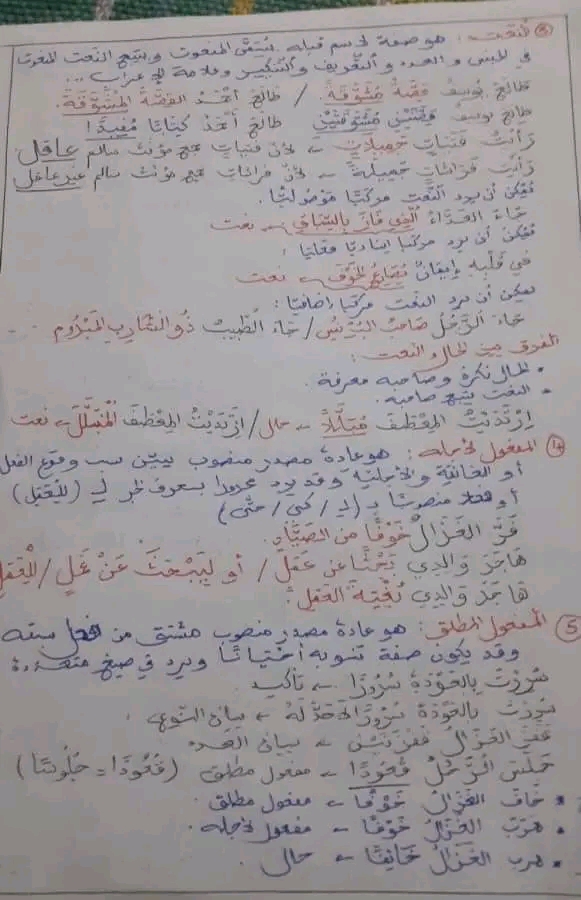 ③ النعت: هو صفة لاسم قبله يسمى المنعوت ويتبع النعت المنعوت
في الجنس والعدد والتعريف والتنكير وعلامة الإعراب...
طالع يوسف قصة مشوقة. / طالع أحمد القصة المشوقة.
طالع يوسف قصتين مشوقتين طالع أحمد كتابا مفيدا!
رأيت فتيات جميلات ← لأن فتيات جمع مؤنث سالم عاقل
رأيت فراشات جميلة ← لأن فراشات جمع مؤنث سالم غير عاقل
يمكن أن يرد النعت مركبا موصوليا.
جاء العداء الذي فاز بالسباق ← نعت
يمكن أن يرد مركبا إسناديا فعليا:
في قلبه إيمان يصارع الخوف ← نعت
يمكن أن يرد النعت مركبا إضافيا:
جاء الرجل صاحب البرنس / جاء الطبيب ذو الشارب المبروم
الفرق بين الحال والنعت:
• الحال نكرة وصاحبه معرفة.
• النعت يتبع صاحبه.
ارتديت المعطف مبللا ← حال / ارتديت المعطف المبلل ← نعت
④ المفعول لأجله: هو عادة مصدر منصوب يبين سبب وقوع الفعل
أو الغاية والأجلية وقد يرد مجرورا بحرف جر لـ (للعمل)
أو فعلا منصوبا بـ (لـ / كي / حتى)
فر الغزال خوفا من الصياد.
هاجر والدي بحثا عن عمل / أو ليبحث عن عمل / للعمل
هاجر والدي بغية العمل.
⑤ المفعول المطلق: هو عادة مصدر منصوب مشتق من فعل
وقد يكون صفة تنوبه أحيانا ويرد في صيغ متعددة
سررت بالعودة سرورا ← تأكيد.
سررت بالعودة سرورا ← بيان النوع.
قفز الغزال قفزتين ← بيان العدد
جلس الرجل قعودا ← مفعول مطلق (قعودا = جلوسا)
• خاف الغزال خوفا ← مفعول مطلق.
• هرب الغزال خوفا ← مفعول لأجله.
• هرب الغزال خائفا ← حال.